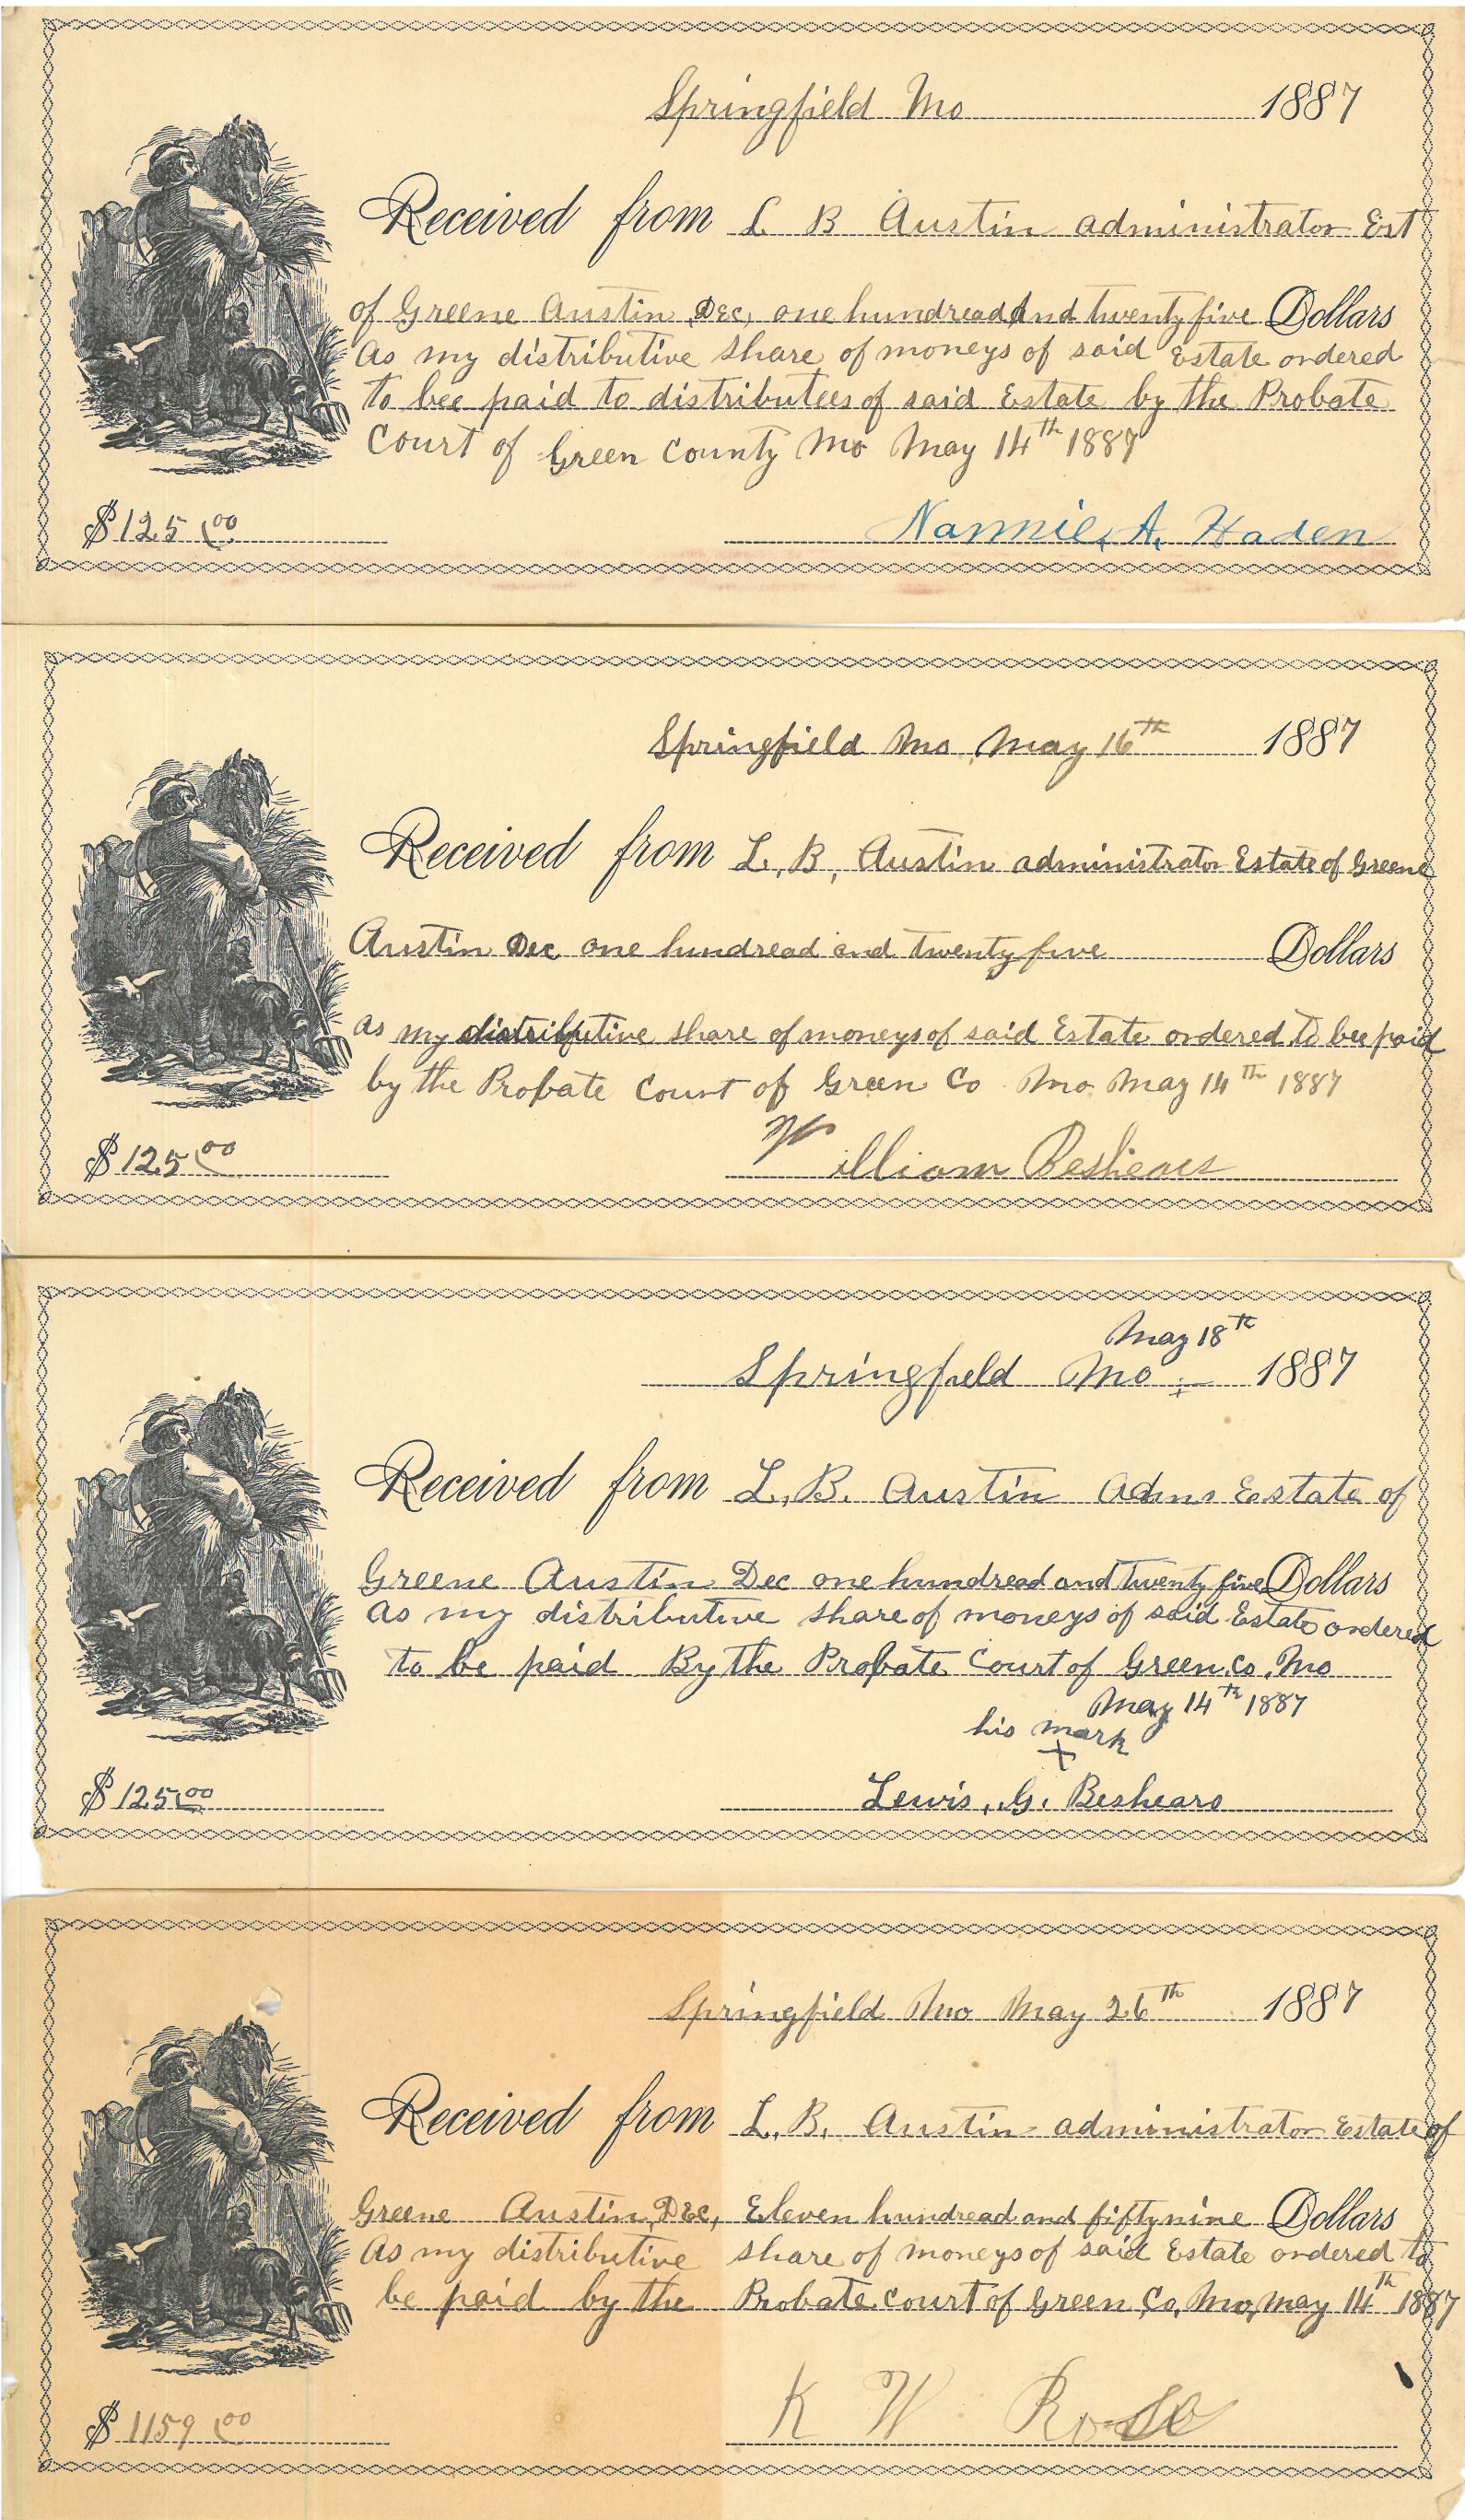 Springfield Mo 1887
Received from L B Austin administrator Est
of Greene Austin Dec, one hundread And twenty five Dollars
As my distributive share of moneys of said Estate ordered
to bee paid to distributees of said Estate by the Probate
Court of Green County Mo May 14th 1887
$125.00
Nannie, A, Haden
Springfield Mo May 16th 1887
Received from L, B, Austin administrator Estate of Greene
Austin Dec one hundread and twenty five Dollars
as my distributive share of moneys of said Estate ordered to bee paid
by the Probate Court of Green Co Mo May 14th 1887
$125.00
William Beshears
May 18th
Springfield Mo 1887
Received from L, B. Austin Adms Estate of
Greene Austin Dec one hundread and twenty five Dollars
As my distributive share of moneys of said Estate ordered
to be paid By the Probate Court of Green Co, Mo
May 14th 1887
his mark
x
$125.00
Lewis, G, Beshears
Springfield Mo May 26th 1887
Received from L, B, Austin administrator Estate of
Greene Austin, Dec, Eleven hundread and fifty nine Dollars
As my distributive share of moneys of said Estate ordered to
be paid by the Probate Court of Green Co, Mo, May 14th 1887
$1159.00
K W Rose